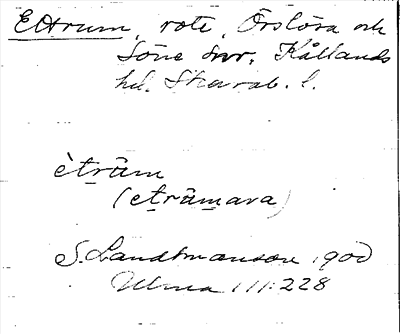 Ettrum, rote, Örslösa och
Söne snr, Kållands
hd. Skarab. l.
ètrùm
(etrùmara)
S. Landtmanson 1900
Ulma 111:228